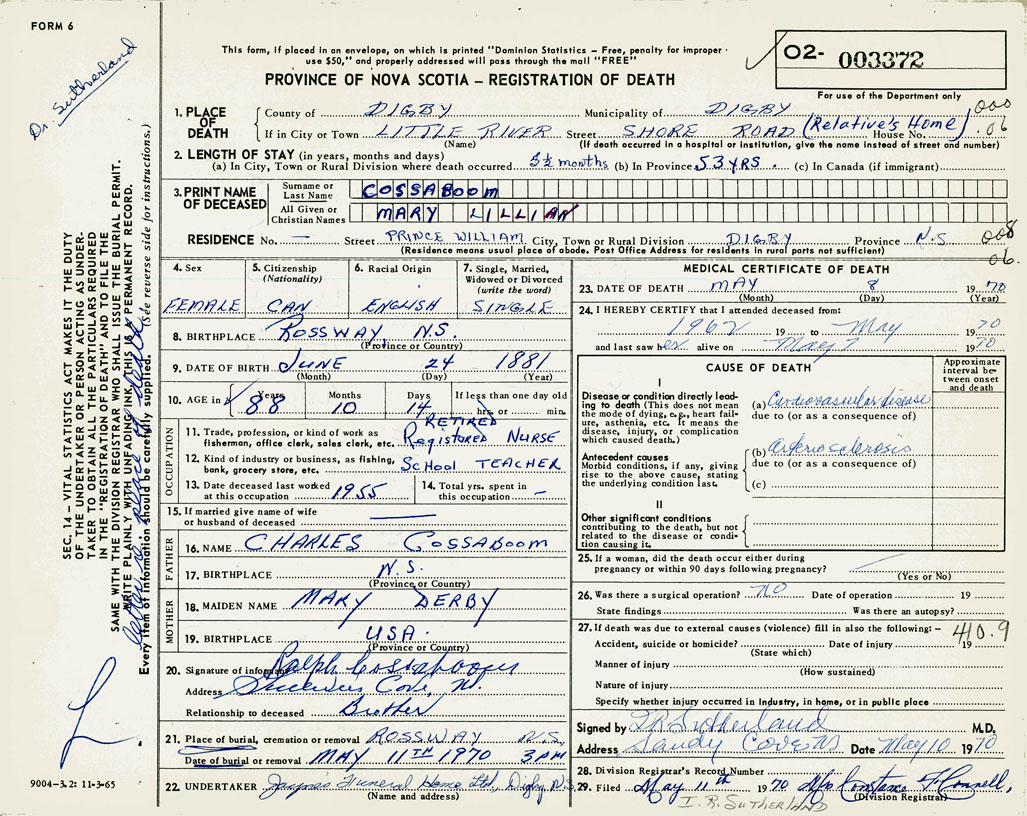 FORM 6
Dr. Sutherland
This form, if placed in an envelope, on which is printed "Dominion Statistics – Free, penalty for improper
use $50," and properly addressed will pass through the mail "FREE"
PROVINCE OF NOVA SCOTIA – REGISTRATION OF DEATH
O2- 003372
For use of the Department only
1. PLACE OF DEATH
County of DIGBY Municipality of DIGBY 000
If in City or Town LITTLE RIVER Street SHORE ROAD (Relative's Home) House No. 06
(Name) (If death occurred in a hospital or institution, give the name instead of street and number)
2. LENGTH OF STAY (in years, months and days)
(a) In City, Town or Rural Division where death occurred 5½ months (b) In Province 53 YRS. (c) In Canada (if immigrant)
3. PRINT NAME OF DECEASED
Surname or Last Name COSSABOOM
All Given or Christian Names MARY LILLIAN
RESIDENCE No. — Street PRINCE WILLIAM City, Town or Rural Division DIGBY Province N.S. 008
(Residence means usual place of abode. Post Office Address for residents in rural parts not sufficient) 06.
SEC. 14 – VITAL STATISTICS ACT MAKES IT THE DUTY
OF THE UNDERTAKER OR PERSON ACTING AS UNDER-
TAKER TO OBTAIN ALL THE PARTICULARS REQUIRED
IN THE "REGISTRATION OF DEATH" AND TO FILE THE
SAME WITH THE DIVISION REGISTRAR WHO SHALL ISSUE THE BURIAL PERMIT.
WRITE PLAINLY WITH UNFADING INK, THIS IS A PERMANENT RECORD.
Every item of information should be carefully supplied. (See reverse side for instructions.)
letter re place of death
L
4. Sex
FEMALE
5. Citizenship
(Nationality)
CAN
6. Racial Origin
ENGLISH
7. Single, Married,
Widowed or Divorced
(write the word)
SINGLE
8. BIRTHPLACE ROSSWAY N.S.
(Province or Country)
9. DATE OF BIRTH JUNE 24 1881
(Month) (Day) (Year)
10. AGE in Years 88 Months 10 Days 14 If less than one day old
hrs. or min.
OCCUPATION
11. Trade, profession, or kind of work as RETIRED
fisherman, office clerk, sales clerk, etc. Registered NURSE
12. Kind of industry or business, as fishing,
bank, grocery store, etc. SCHOOL TEACHER
13. Date deceased last worked
at this occupation 1955
14. Total yrs. spent in
this occupation –
15. If married give name of wife
or husband of deceased —
FATHER
16. NAME CHARLES COSSABOOM
17. BIRTHPLACE N.S.
(Province or Country)
MOTHER
18. MAIDEN NAME MARY DERBY
19. BIRTHPLACE USA.
(Province or Country)
20. Signature of informant Ralph Cossaboom
Address Cove, NS.
Relationship to deceased Brother
21. Place of burial, cremation or removal ROSSWAY N.S.
Date of burial or removal MAY 11TH 1970 3 PM
22. UNDERTAKER Funeral Home Ltd, Digby N.S.
(Name and address)
MEDICAL CERTIFICATE OF DEATH
23. DATE OF DEATH MAY 8 1970
(Month) (Day) (Year)
24. I HEREBY CERTIFY that I attended deceased from:
1962 19 to May 1970
and last saw her alive on May 7 1970
CAUSE OF DEATH
Approximate
interval be-
tween onset
and death
I
Disease or condition directly lead-
ing to death (This does not mean
the mode of dying, e.g., heart fail-
ure, asthenia, etc. It means the
disease, injury, or complication
which caused death.)
(a) Cardiovascular disease
due to (or as a consequence of)
Antecedent causes
Morbid conditions, if any, giving
rise to the above cause, stating
the underlying condition last.
(b) Arteriosclerosis
due to (or as a consequence of)
(c)
II
Other significant conditions
contributing to the death, but not
related to the disease or condi-
tion causing it.
25. If a woman, did the death occur either during
pregnancy or within 90 days following pregnancy?
(Yes or No)
26. Was there a surgical operation? NO Date of operation 19
State findings Was there an autopsy?
27. If death was due to external causes (violence) fill in also the following: – 410.9
Accident, suicide or homicide? Date of injury 19
(State which)
Manner of injury
(How sustained)
Nature of injury
Specify whether injury occurred in Industry, in home, or in public place
Signed by I R Sutherland M.D.
Address Sandy Cove NS Date May 10 1970
28. Division Registrar's Record Number
29. Filed May 11th 1970 Mrs Constance F. Connell,
(Division Registrar)
I. R. SUTHERLAND
9004-3.2: 11-3-65